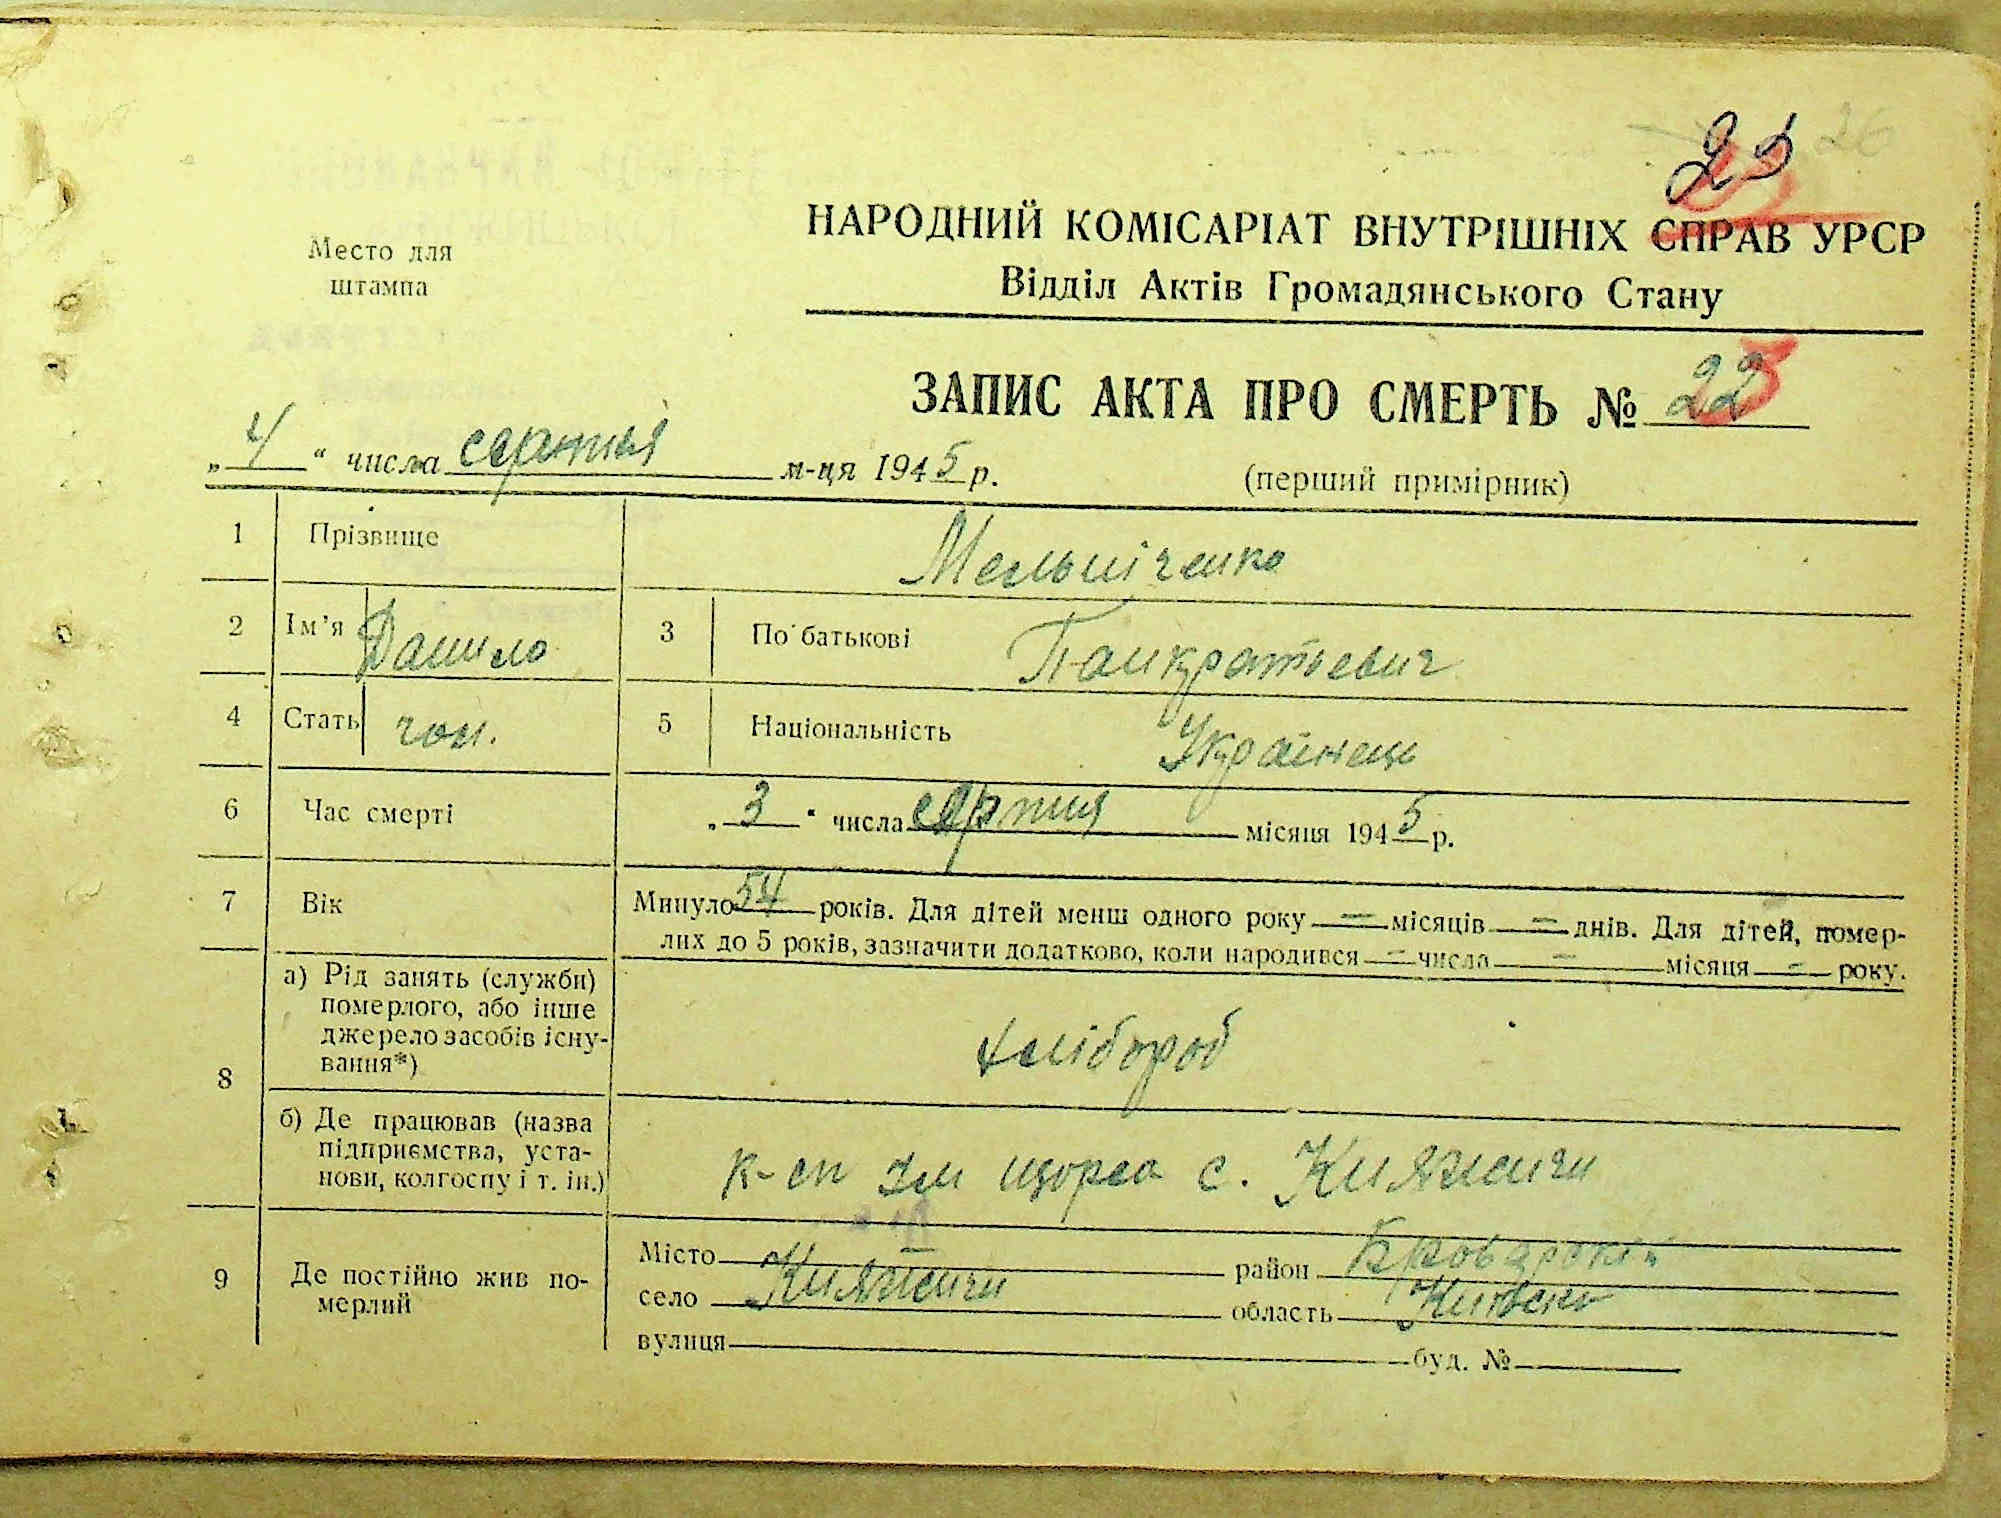 26
Место для
штампа
НАРОДНИЙ КОМІСАРІАТ ВНУТРІШНІХ СПРАВ УРСР
Відділ Актів Громадянського Стану
ЗАПИС АКТА ПРО СМЕРТЬ № 22
„4“ числа серпня м-ця 1945 р.
(перший примірник)
1 Прізвище Мельніченко
2 Ім’я Данило 3 По батькові Панкратьевич
4 Стать чол. 5 Національність Українець
6 Час смерті „3“ числа серпня місяця 1945 р.
7 Вік Минуло 54 років. Для дітей менш одного року — місяців — днів. Для дітей, помер-
лих до 5 років, зазначити додатково, коли народився — числа — місяця — року.
8 а) Рід занять (служби)
померлого, або інше
джерело засобів існу-
вання*)
хлібороб
б) Де працював (назва
підприємства, уста-
нови, колгоспу і т. ін.)
к-сп Ім щорса с. Княжичи
9 Де постійно жив по-
мерлий
Місто — район Броварський
село Княжичи область Київська
вулиця буд. №